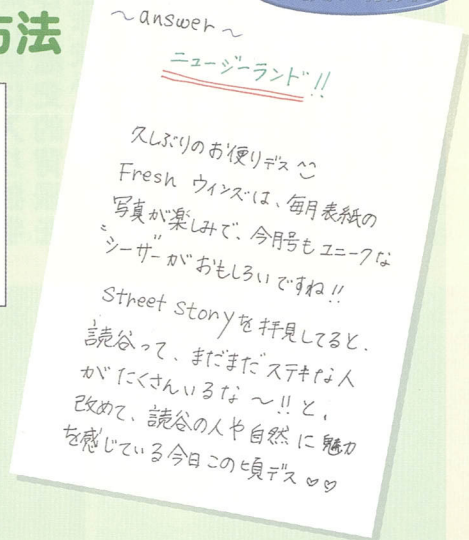 方法
～answer～
ニュージーランド!!
久しぶりのお便りデス^^
Fresh ウィンズは、毎月表紙の
写真が楽しみで、今月号もユニークな
"シーザー"がおもしろいですね!!
Street Storyを拝見してると、
読谷って、まだまだステキな人
がたくさんいるな～!!と、
改めて、読谷の人や自然に魅力
を感じている今日この頃デス♡♡